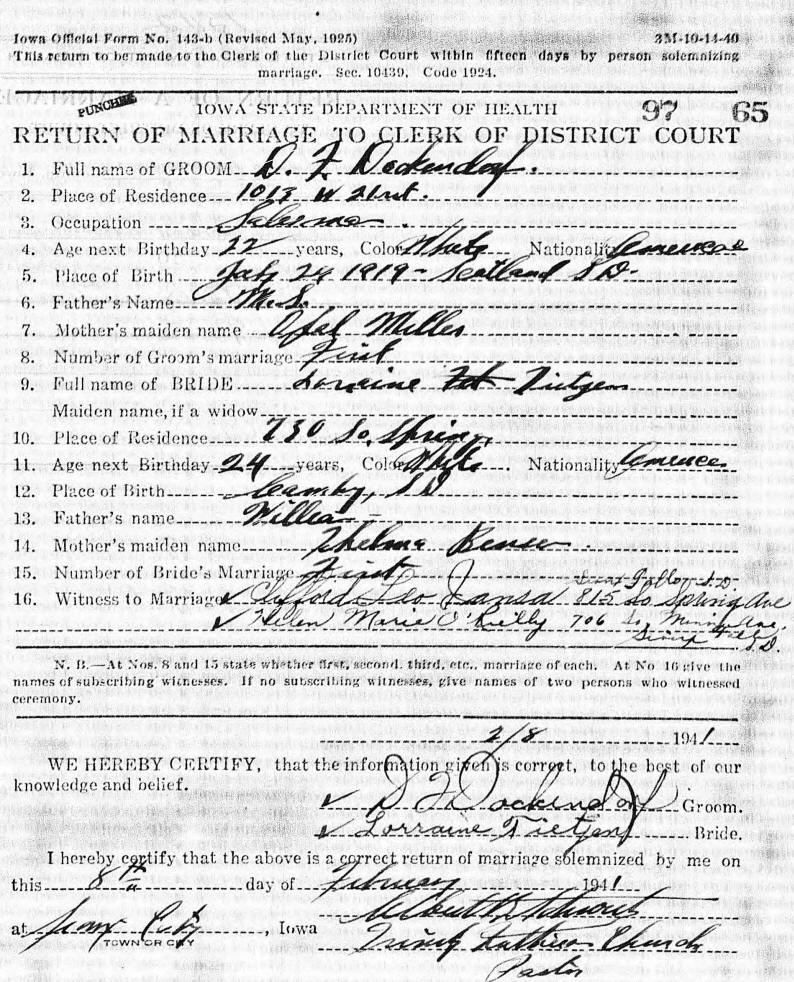 Iowa Official Form No. 143-b (Revised May, 1925) 3M-10-14-40
This return to be made to the Clerk of the District Court within fifteen days by person solemnizing
marriage. Sec. 10439, Code 1924.
PUNCHED IOWA STATE DEPARTMENT OF HEALTH 97 65
RETURN OF MARRIAGE TO CLERK OF DISTRICT COURT
1. Full name of GROOM D. F. Dockendorf.
2. Place of Residence 1013 W 21st.
3. Occupation Salesman
4. Age next Birthday 22 years, Color White Nationality American
5. Place of Birth July 24 1919 - Scotland S D-
6. Father's Name M. S.
7. Mother's maiden name Opal Miller
8. Number of Groom's marriage First
9. Full name of BRIDE Lorraine Tietjen
Maiden name, if a widow
10. Place of Residence 730 So. Spring,
11. Age next Birthday 24 years, Color White Nationality American
12. Place of Birth Canby, S D
13. Father's name
14. Mother's maiden name Thelma
15. Number of Bride's Marriage First Sioux Falls S. D-
16. Witness to Marriage Clifford Leo Jansa 815 So Spring Ave
Helen Marie O'Reilly 706 So. Minn Ave,
Sioux Falls
S.D.
N. B.—At Nos. 8 and 15 state whether first, second, third, etc., marriage of each. At No 16 give the
names of subscribing witnesses. If no subscribing witnesses, give names of two persons who witnessed
ceremony.
2/8 1941
WE HEREBY CERTIFY, that the information given is correct, to the best of our
knowledge and belief.
D F Dockendorf Groom.
Lorraine Tietjen Bride.
I hereby certify that the above is a correct return of marriage solemnized by me on
this 8th day of February 1941
at City, Iowa
TOWN OR CITY
Trinity Lutheran Church
Pastor